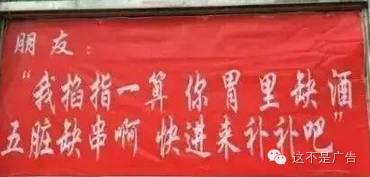 朋友：
“我掐指一算 你胃里缺酒
五脏缺串啊 快进来补补吧”
这不是广告